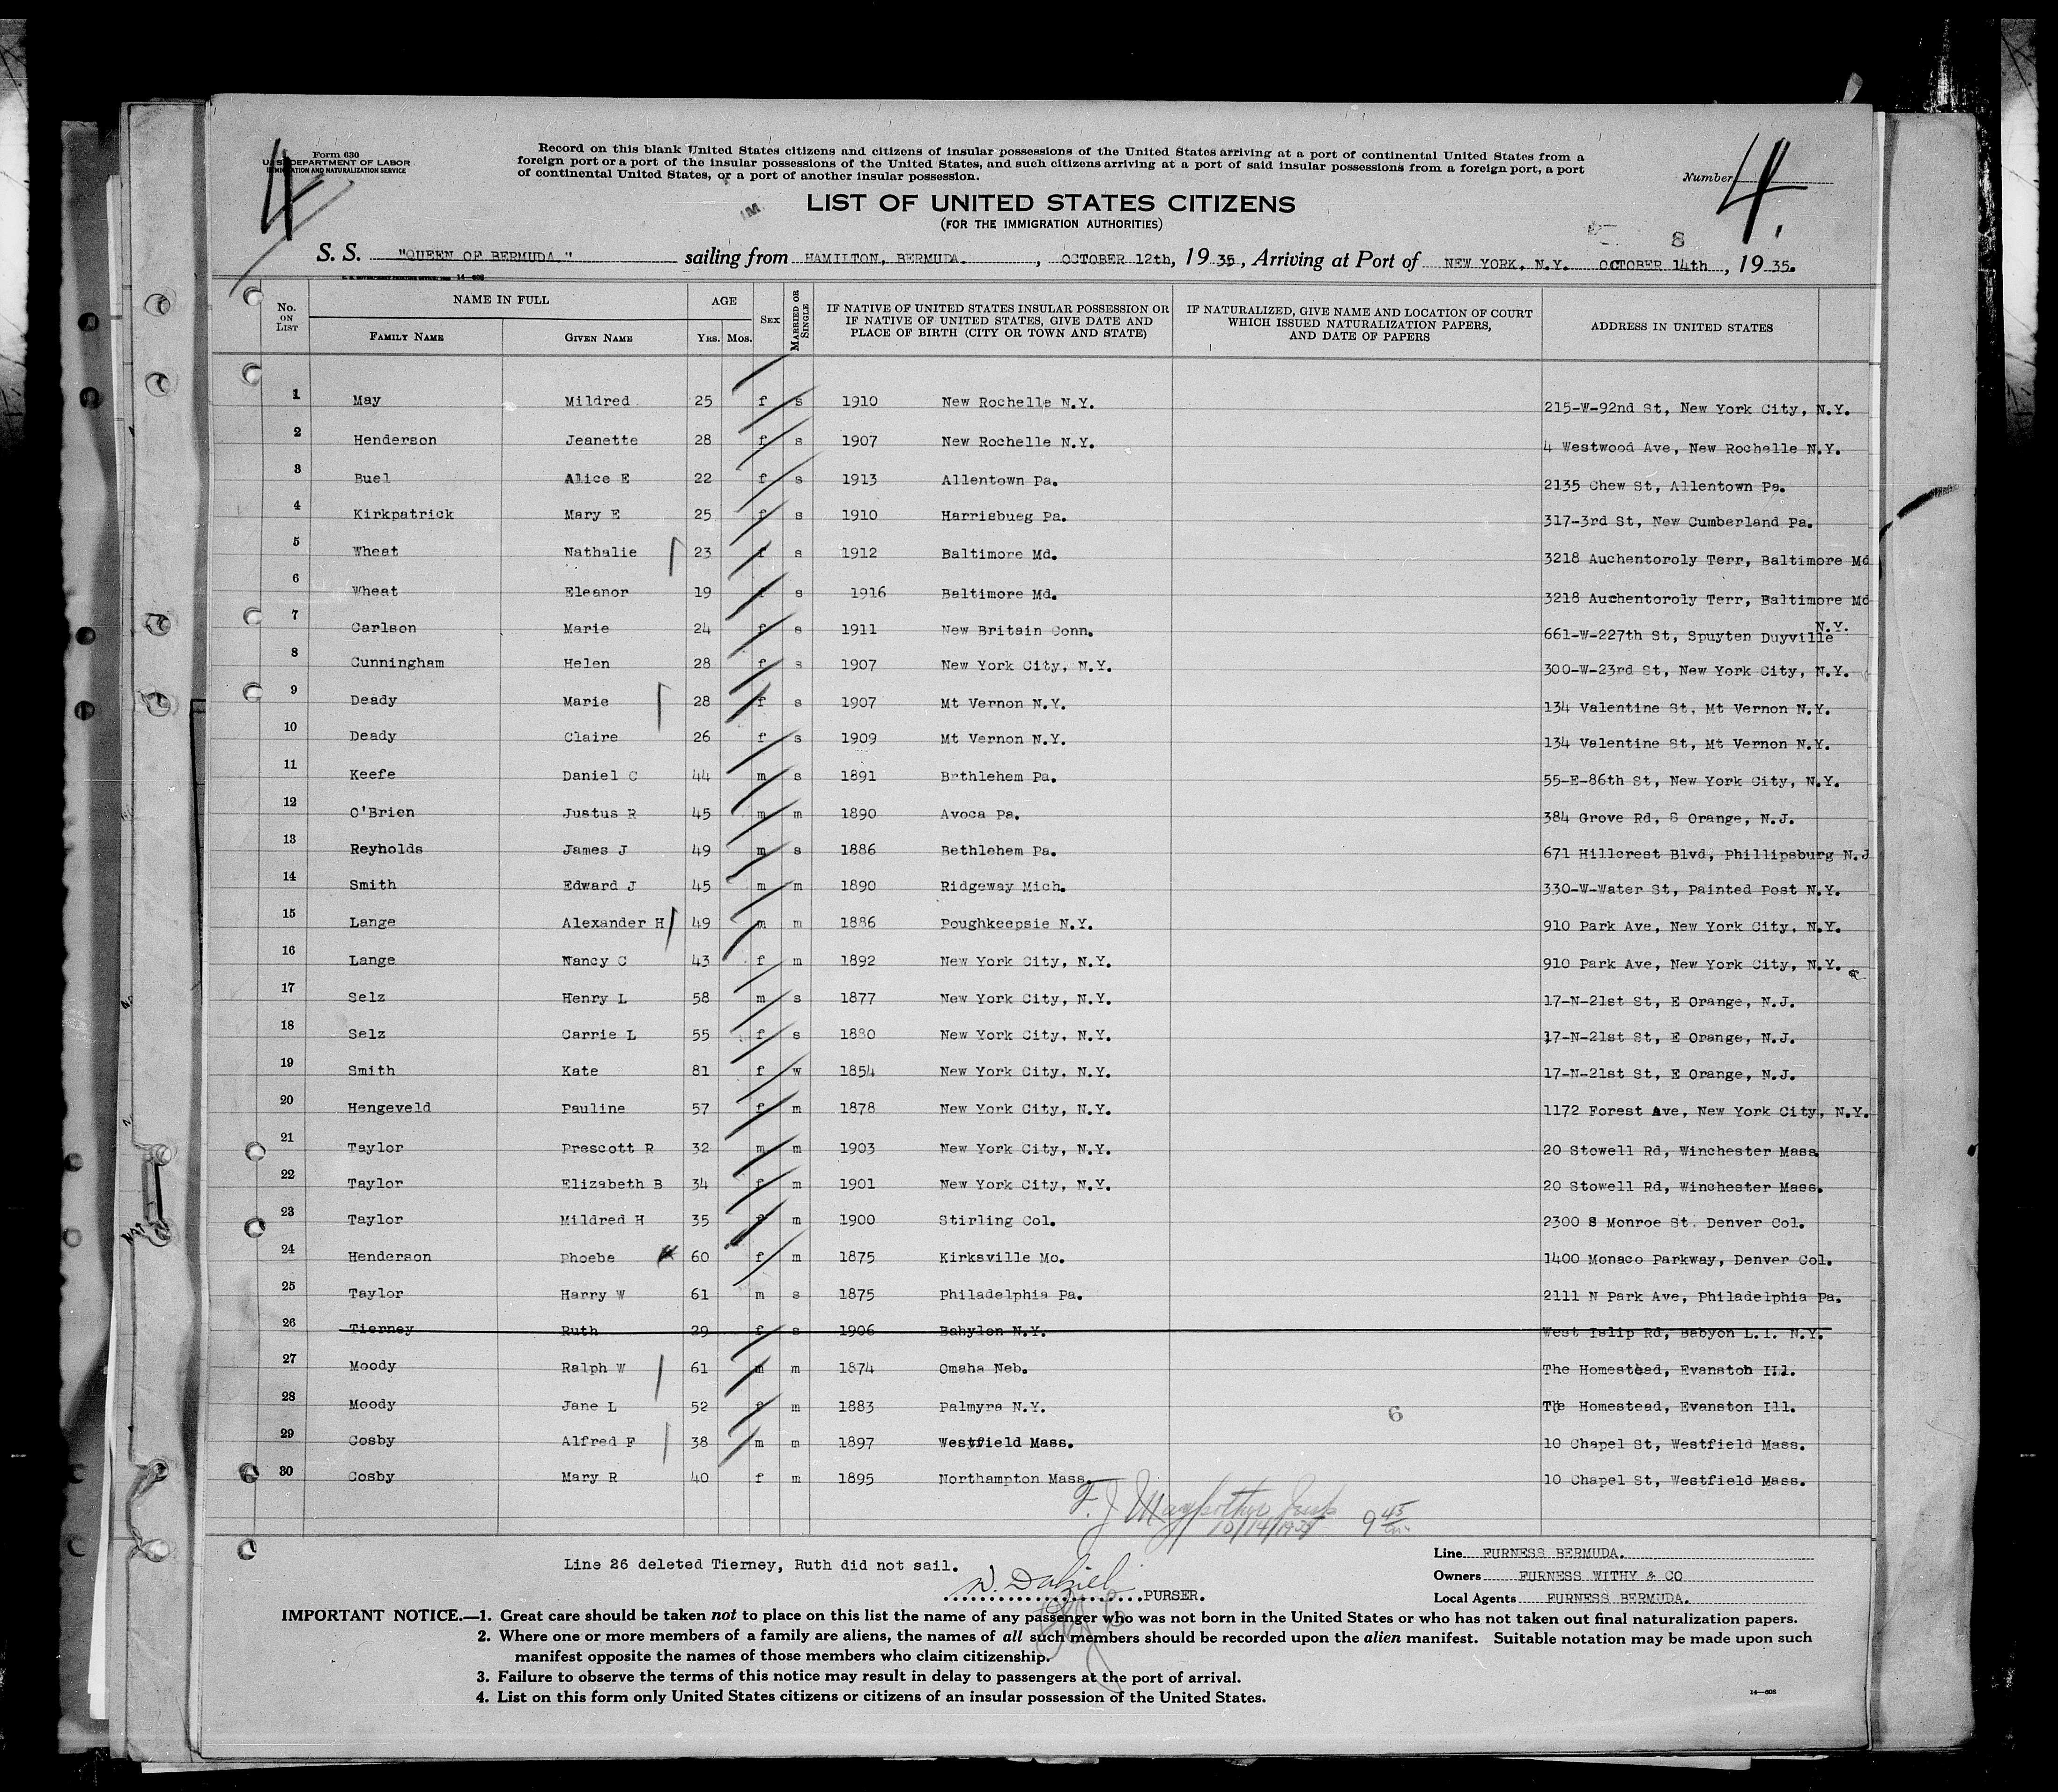 4
Form 630
U. S. DEPARTMENT OF LABOR
IMMIGRATION AND NATURALIZATION SERVICE
Record on this blank United States citizens and citizens of insular possessions of the United States arriving at a port of continental United States from a
foreign port or a port of the insular possessions of the United States, and such citizens arriving at a port of said insular possessions from a foreign port, a port
of continental United States, or a port of another insular possession.
Number 4
LIST OF UNITED STATES CITIZENS
(FOR THE IMMIGRATION AUTHORITIES)
8
S. S. "QUEEN OF BERMUDA." sailing from HAMILTON, BERMUDA. , OCTOBER 12th, 19 35, Arriving at Port of NEW YORK, N.Y. OCTOBER 14th , 19 35.
No. ON LIST NAME IN FULL FAMILY NAME GIVEN NAME AGE YRS. MOS. SEX MARRIED OR SINGLE IF NATIVE OF UNITED STATES INSULAR POSSESSION OR IF NATIVE OF UNITED STATES, GIVE DATE AND PLACE OF BIRTH (CITY OR TOWN AND STATE) IF NATURALIZED, GIVE NAME AND LOCATION OF COURT WHICH ISSUED NATURALIZATION PAPERS, AND DATE OF PAPERS ADDRESS IN UNITED STATES
1 May Mildred 25 f s 1910 New Rochelle N.Y. 215-W-92nd St, New York City, N.Y.
2 Henderson Jeanette 28 f s 1907 New Rochelle N.Y. 4 Westwood Ave, New Rochelle N.Y.
3 Buel Alice E 22 f s 1913 Allentown Pa. 2135 Chew St, Allentown Pa.
4 Kirkpatrick Mary E 25 f s 1910 Harrisbueg Pa. 317-3rd St, New Cumberland Pa.
5 Wheat Nathalie 23 f s 1912 Baltimore Md. 3218 Auchentoroly Terr, Baltimore Md
6 Wheat Eleanor 19 f s 1916 Baltimore Md. 3218 Auchentoroly Terr, Baltimore Md
7 Carlson Marie 24 f s 1911 New Britain Conn. 661-W-227th St, Spuyten Duyville N.Y.
8 Cunningham Helen 28 f s 1907 New York City, N.Y. 300-W-23rd St, New York City, N.Y.
9 Deady Marie 28 f s 1907 Mt Vernon N.Y. 134 Valentine St, Mt Vernon N.Y.
10 Deady Claire 26 f s 1909 Mt Vernon N.Y. 134 Valentine St, Mt Vernon N.Y.
11 Keefe Daniel C 44 m s 1891 Bethlehem Pa. 55-E-86th St, New York City, N.Y.
12 O'Brien Justus R 45 m m 1890 Avoca Pa. 384 Grove Rd, S Orange, N.J.
13 Reyholds James J 49 m s 1886 Bethlehem Pa. 671 Hillcrest Blvd, Phillipsburg N.J
14 Smith Edward J 45 m m 1890 Ridgeway Mich. 330-W-Water St, Painted Post N.Y.
15 Lange Alexander H 49 m m 1886 Poughkeepsie N.Y. 910 Park Ave, New York City, N.Y.
16 Lange Nancy C 43 f m 1892 New York City, N.Y. 910 Park Ave, New York City, N.Y.
17 Selz Henry L 58 m s 1877 New York City, N.Y. 17-N-21st St, E Orange, N.J.
18 Selz Carrie L 55 f s 1880 New York City, N.Y. 17-N-21st St, E Orange, N.J.
19 Smith Kate 81 f w 1854 New York City. N.Y. 17-N-21st St, E Orange, N.J.
20 Hengeveld Pauline 57 f m 1878 New York City, N.Y. 1172 Forest Ave, New York City, N.Y.
21 Taylor Prescott R 32 m m 1903 New York City, N.Y. 20 Stowell Rd, Winchester Mass
22 Taylor Elizabeth B 34 f m 1901 New York City, N.Y. 20 Stowell Rd, Winchester Mass.
23 Taylor Mildred H 35 f m 1900 Stirling Col. 2300 S Monroe St. Denver Col.
24 Henderson Phoebe 60 f m 1875 Kirksville Mo. 1400 Monaco Parkway, Denver Col.
25 Taylor Harry W 61 m s 1875 Philadelphia Pa. 2111 N Park Ave, Philadelphia Pa.
26 Tierney Ruth 29 f s 1906 Babylon N.Y. West Islip Rd, Babyon L.I. N.Y.
27 Moody Ralph W 61 m m 1874 Omaha Neb. The Homestead, Evanston Ill.
28 Moody Jane L 52 f m 1883 Palmyra N.Y. The Homestead, Evanston Ill.
6
29 Cosby Alfred F 38 m m 1897 Westfield Mass. 10 Chapel St, Westfield Mass.
30 Cosby Mary R 40 f m 1895 Northampton Mass. 10 Chapel St, Westfield Mass.
F. J.
10/14/1935 9 45
Line 26 deleted Tierney, Ruth did not sail.
Line FURNESS BERMUDA.
Owners FURNESS WITHY & CO
Local Agents FURNESS BERMUDA.
PURSER.
IMPORTANT NOTICE.—1. Great care should be taken not to place on this list the name of any passenger who was not born in the United States or who has not taken out final naturalization papers.
2. Where one or more members of a family are aliens, the names of all such members should be recorded upon the alien manifest. Suitable notation may be made upon such
manifest opposite the names of those members who claim citizenship.
3. Failure to observe the terms of this notice may result in delay to passengers at the port of arrival.
4. List on this form only United States citizens or citizens of an insular possession of the United States.